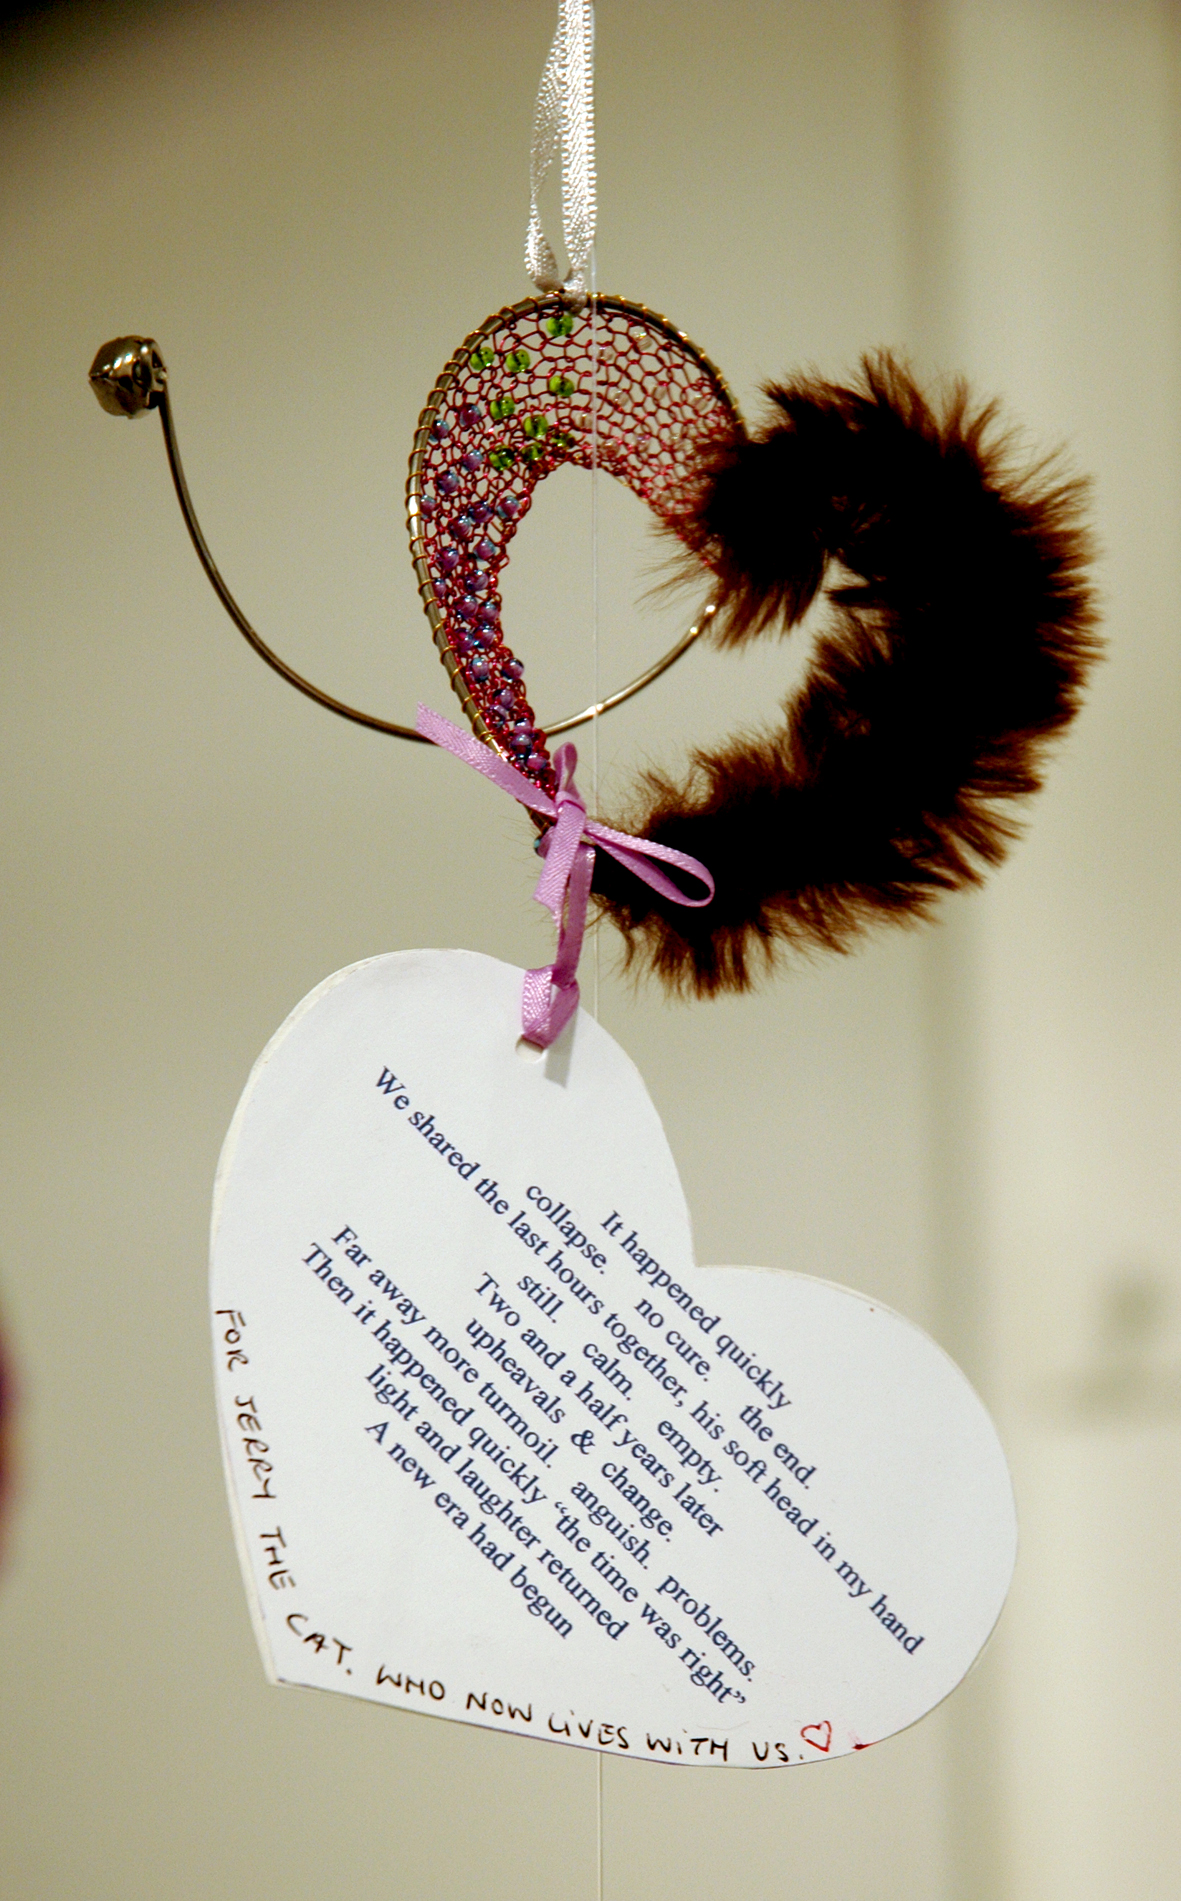 It happened quickly
collapse. no cure. the end.
We shared the last hours together, his soft head in my hand
still. calm. empty.
Two and a half years later
upheavals & change.
Far away more turmoil. anguish. problems.
Then it happened quickly “the time was right”
light and laughter returned
A new era had begun
FOR JERRY THE CAT. WHO NOW LIVES WITH US.